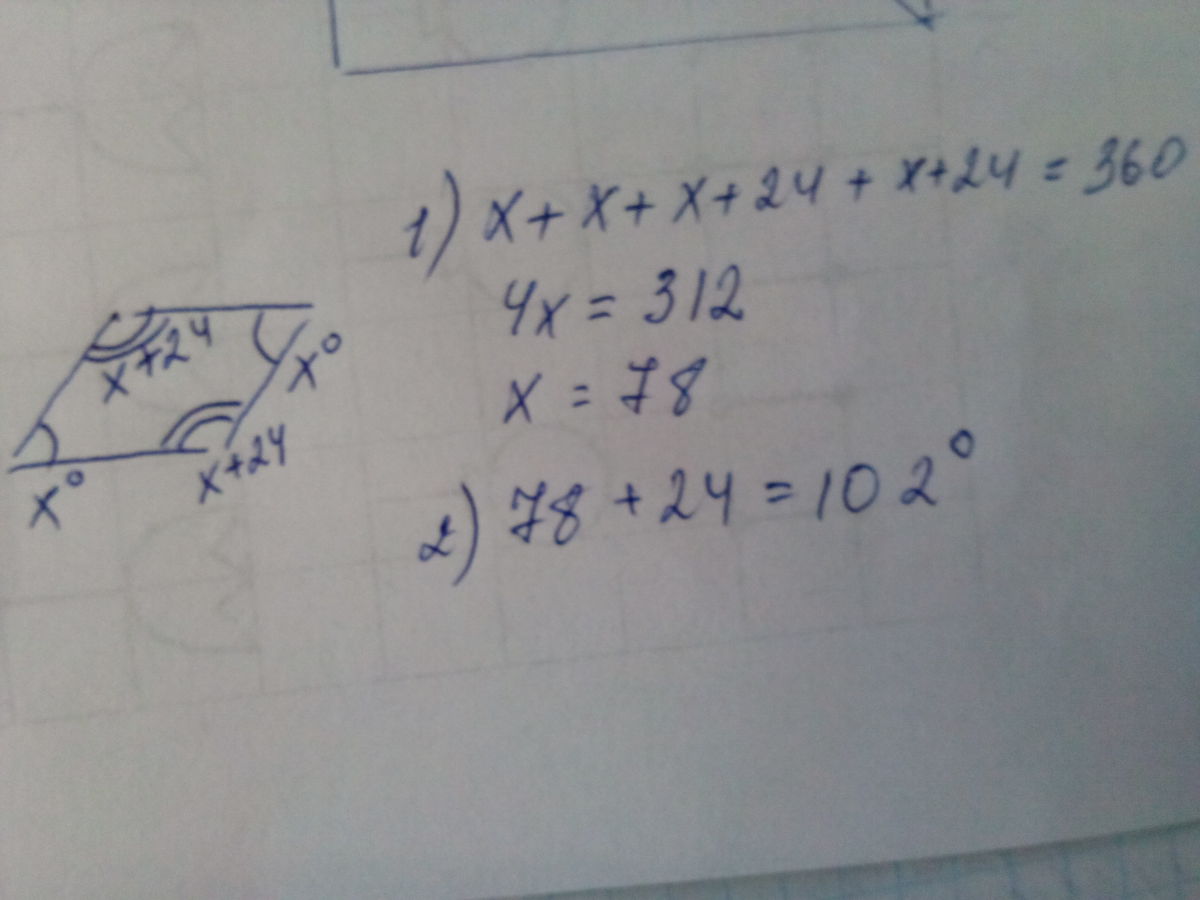 1) x + x + x + 24 + x + 24 = 360
4x = 312
x = 78
2) 78 + 24 = 102°
x+24
x°
x°
x+24